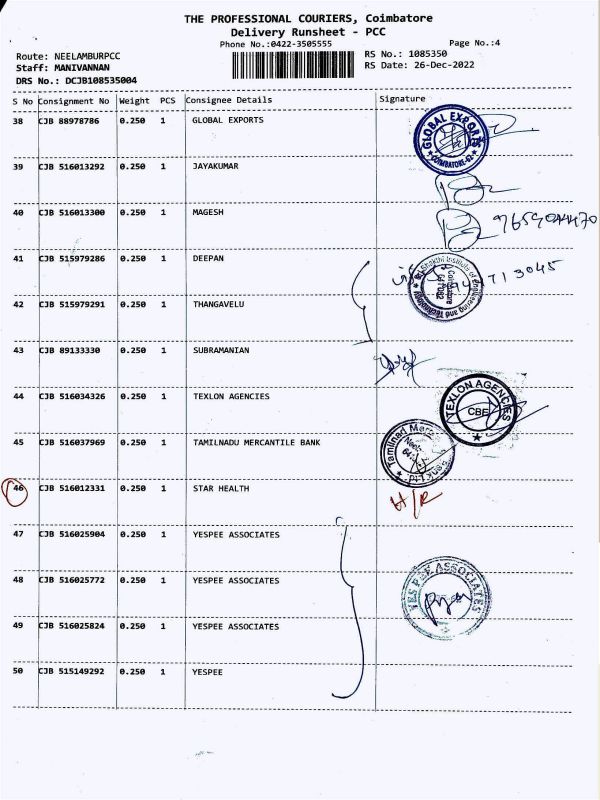 THE PROFESSIONAL COURIERS, Coimbatore
Delivery Runsheet - PCC
Phone No.:0422-3505555
Page No.:4
Route: NEELAMBURPCC
RS No.: 1085350
Staff: MANIVANNAN
RS Date: 26-Dec-2022
DRS No.: DCJB108535004
S No Consignment No Weight PCS Consignee Details Signature
38 CJB 88978786 0.250 1 GLOBAL EXPORTS
GLOBAL EXPORTS
COIMBATORE-62
39 CJB 516013292 0.250 1 JAYAKUMAR
40 CJB 516013300 0.250 1 MAGESH
9659044470
41 CJB 515979286 0.250 1 DEEPAN
Shakthi Institute of Engineering and Technology
Coimbatore
713045
42 CJB 515979291 0.250 1 THANGAVELU
43 CJB 89133330 0.250 1 SUBRAMANIAN
44 CJB 516034326 0.250 1 TEXLON AGENCIES
TEXLON AGENCIES
CBE
45 CJB 516037969 0.250 1 TAMILNADU MERCANTILE BANK
46 CJB 516012331 0.250 1 STAR HEALTH
H/R
47 CJB 516025904 0.250 1 YESPEE ASSOCIATES
48 CJB 516025772 0.250 1 YESPEE ASSOCIATES
YES PEE ASSOCIATES
49 CJB 516025824 0.250 1 YESPEE ASSOCIATES
50 CJB 515149292 0.250 1 YESPEE